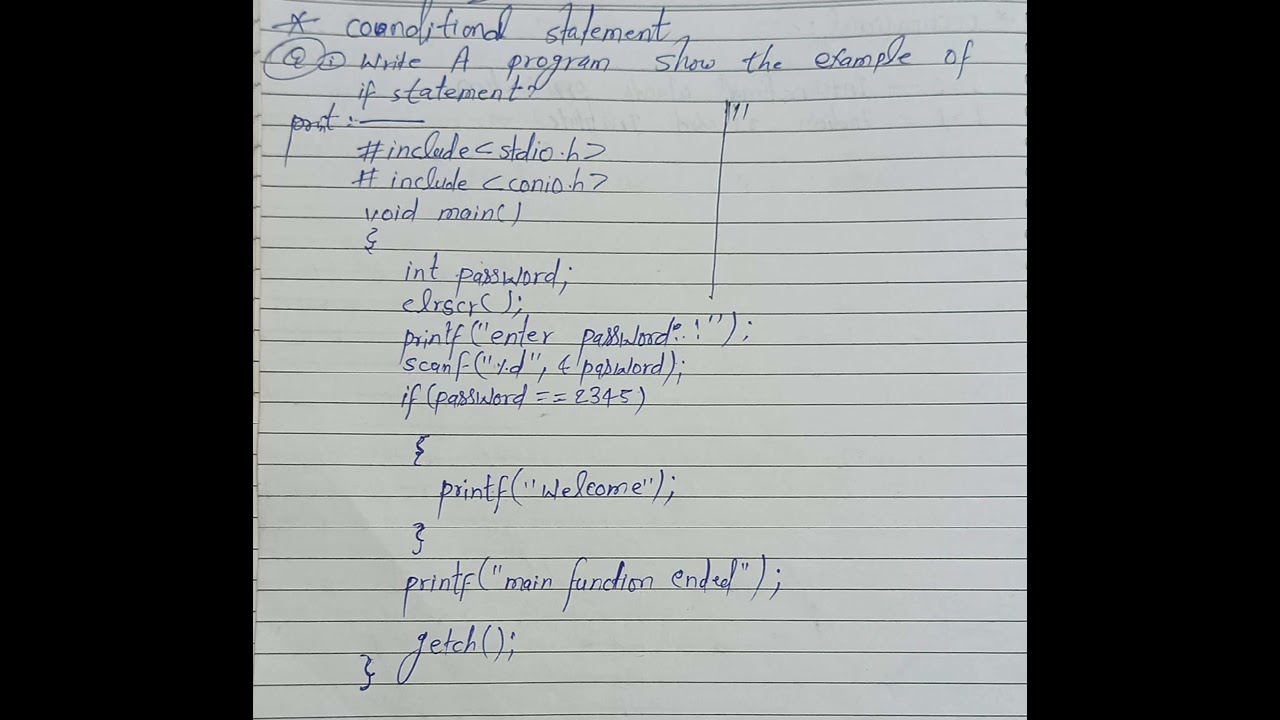 * conditional statement
Q ① Write A program show the example of
if statement?
print :-
#include<stdio.h>
# include <conio.h>
void main()
{
int password;
clrscr();
printf("enter password:.!");
scanf("%d", & pasword);
if (password == 2345)
{
printf("welcome");
}
printf("main function ended");
getch();
}